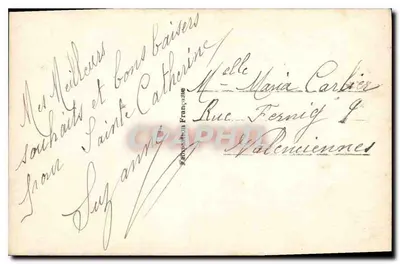 Mes Meilleurs
souhaits et bons baisers
pour Sainte Catherine
Suzanne
Fabrication Française
Melle Maria Carlier
Rue Fernig 9
Valenciennes
CPRPHIL